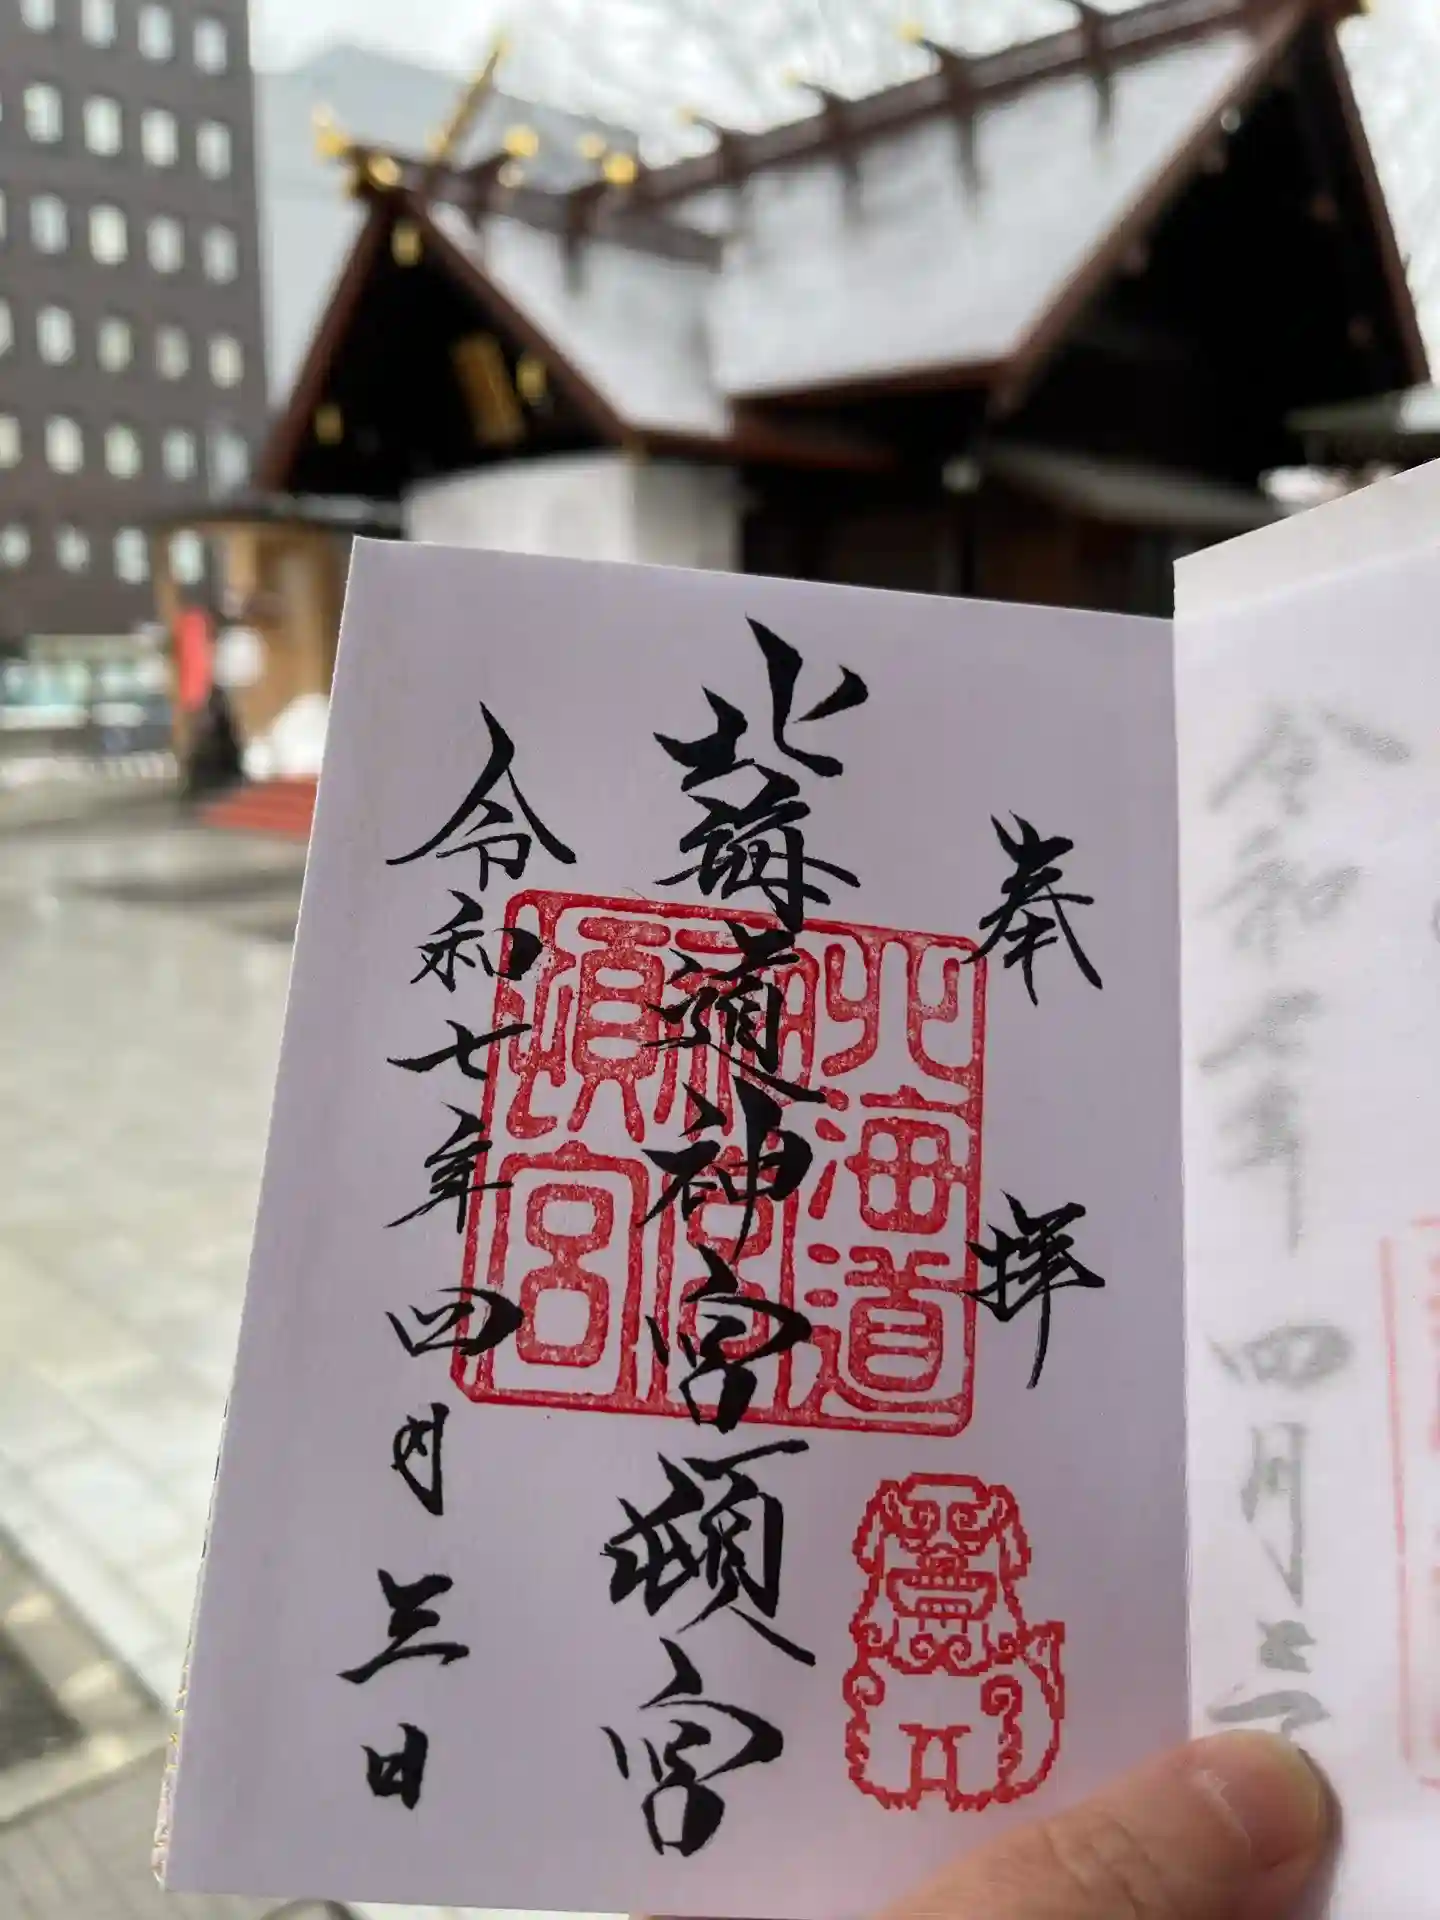 奉拝
北海道神宮頓宮
令和七年四月三日
北海道
神宮
頓宮
令和七年四月三日